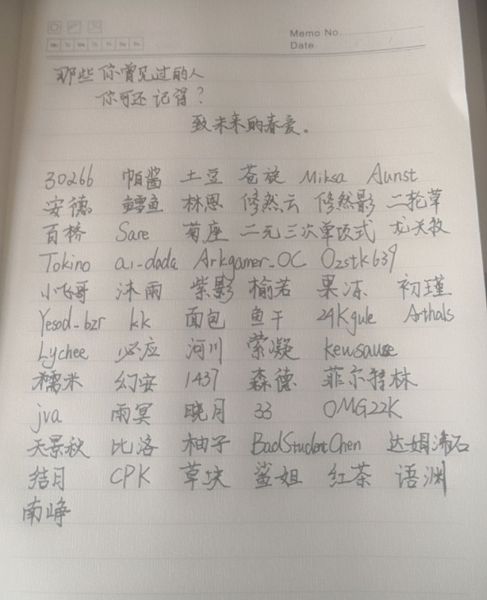 Memo No.
Mo Tu We Th Fr Sa Su
Date
那些你曾见过的人
你可还记得？
致未来的春爱。
30266 帕酱 土豆 苍旋 Miksa Aunst
安德 鳕鱼 林恩 修然云 修然影 二轮草
百桥 Sare 菊座 二元三次单项式 龙天牧
Tokino ai-dada Arkgamer_OC Ozstk639
小飞哥 沐雨 紫影 榆若 果冻 初瑾
Yesod_bzr kk 面包 鱼干 24Kgule Arthals
Lychee 必应 河川 萦凝 kewsause
糯米 幻安 1437 森德 菲尔特林
jva 雨冥 晓月 33 OMG22K
天景秋 比洛 柚子 BadStudentChen 达姆沸石
结月 CPK 草块 鲨姐 红茶 语渊
南峥